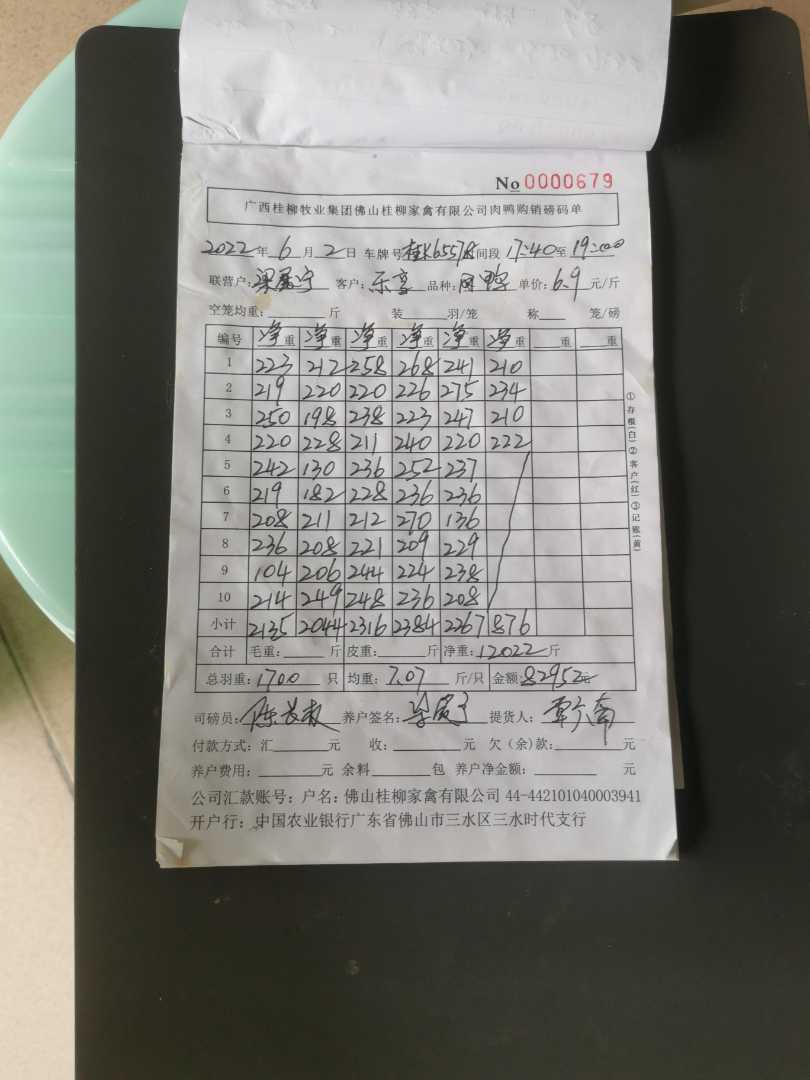 No 0000679
广西桂柳牧业集团佛山桂柳家禽有限公司肉鸭购销磅码单
2022年 6月 2日 车牌号 时间段 17:40至 19:00
联营户: 客户: 乐享 品种: 单价: 6.9 元/斤
空笼均重: 斤 装 羽/笼 称 笼/磅
编号 净重 净重 净重 净重 净重 净重 重 重
1 223 212 258 268 241 210
2 219 220 220 226 275 234
3 250 198 238 223 247 210
4 220 228 211 240 220 222
5 242 130 236 252 237
6 219 182 228 236 236
7 208 211 212 270 136
8 236 208 221 209 229
9 104 206 244 224 238
10 214 249 248 236 208
小计 2135 2044 2316 2384 2267 876
合计 毛重: 斤 皮重: 斤 净重: 12022斤
总羽重: 1700 只 均重: 7.07 斤/只 金额: 82952元
司磅员: 养户签名: 提货人:
付款方式: 汇 元 收: 元 欠(余)款: 元
养户费用: 元 余料 包 养户净金额: 元
公司汇款账号: 户名: 佛山桂柳家禽有限公司 44-442101040003941
开户行: 中国农业银行广东省佛山市三水区三水时代支行
①存根(白)②客户(红)③记账(黄)